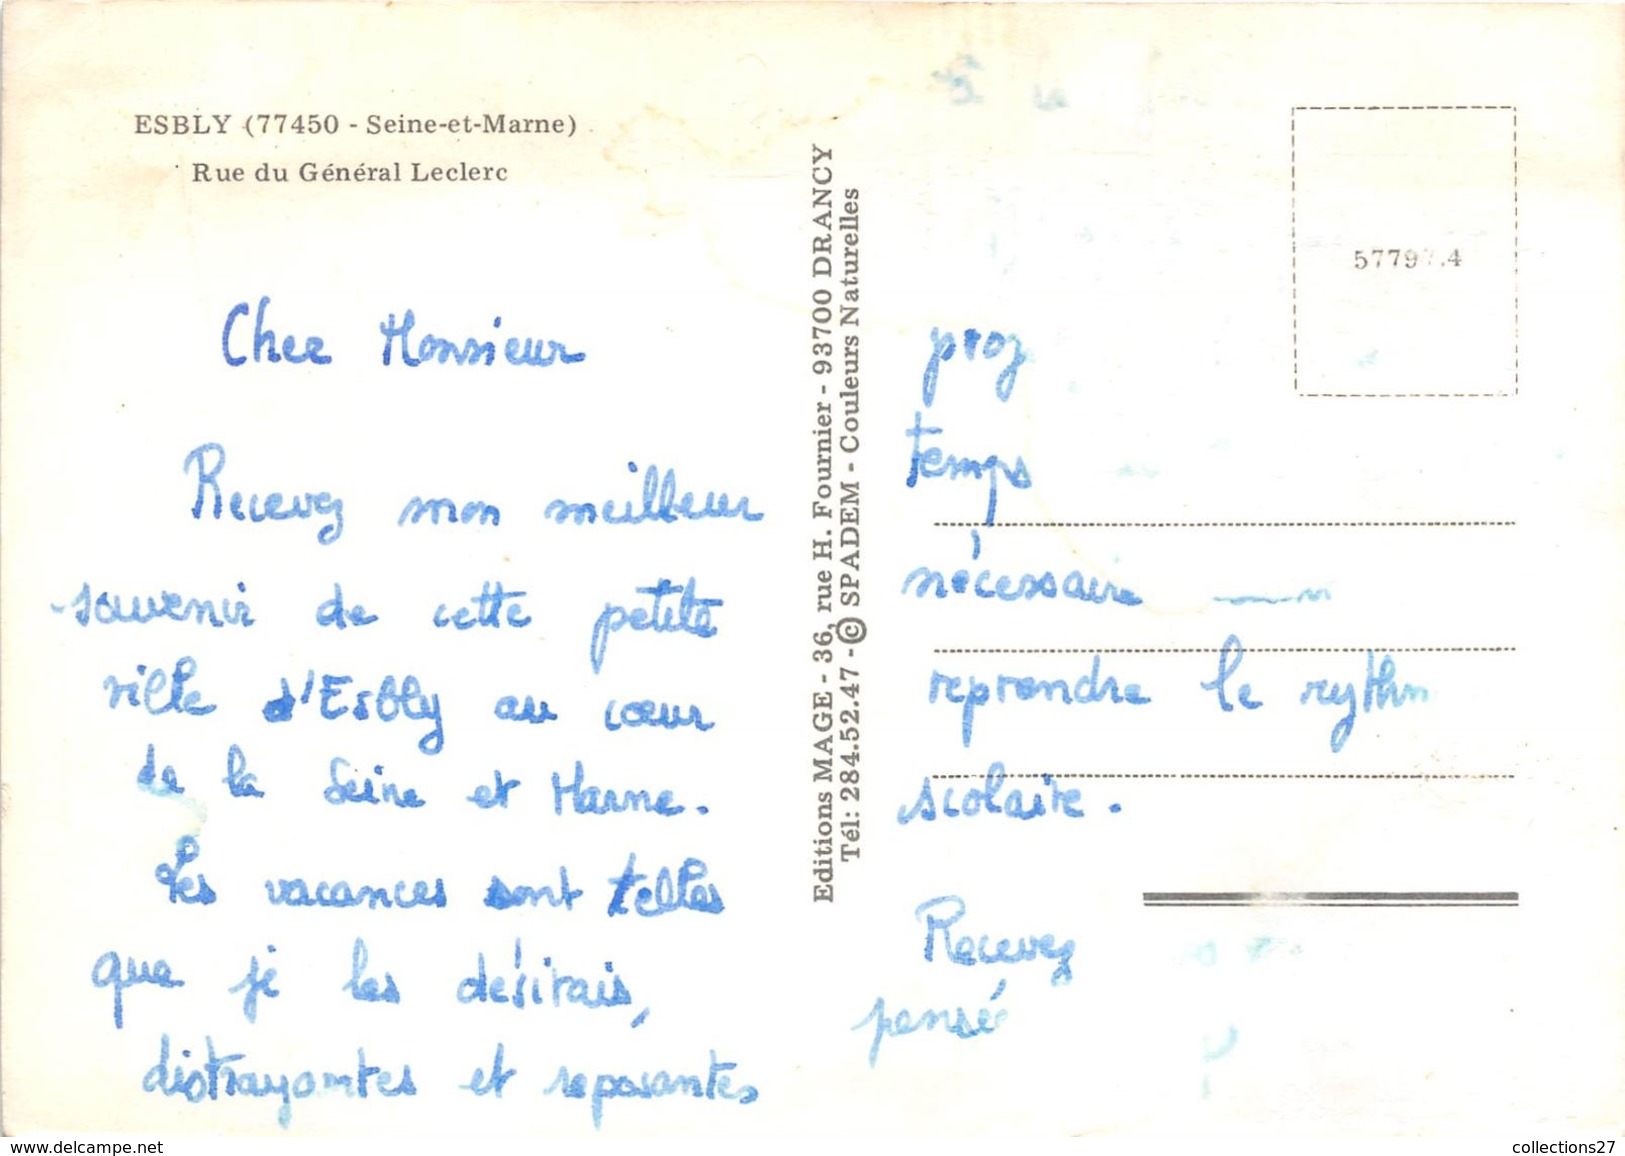 ESBLY (77450 - Seine-et-Marne)
Rue du Général Leclerc
Cher Monsieur
Recevez mon meilleur
souvenir de cette petite
ville d'Esbly au cœur
de la Seine et Marne.
Les vacances sont telles
que je les désirais,
distrayantes et reposantes
Editions MAGE - 36, rue H. Fournier - 93700 DRANCY
Tél: 284.52.47 - © SPADEM - Couleurs Naturelles
temps
nécessaire
reprendre le rythm
scolaire.
Recevez
pensé
collections27